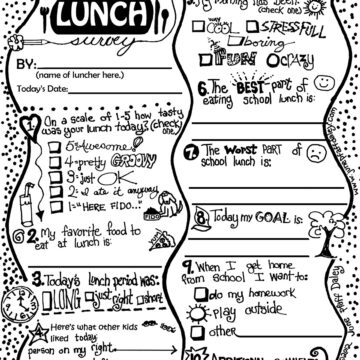 LUNCH
survey
BY:
(name of luncher here.)
Today's Date:
1. On a scale of 1-5 how tasty
was your lunch today? (check
one)
5=Awesome!
4=pretty GROOVY
3=just OK
2=I ate it anyway
1="HERE FIDO..."
FIDO
2. My favorite food to
eat at lunch is:
3. Today's lunch period was:
LONG just right short
4. Here's what other kids
liked today
person on my right
morning has been:
(check one)
way COOL STRESSFULL
boring
FUN CRAZY
6. The "BEST" part of
eating school lunch is:
7. The Worst PART OF
school lunch is:
8. Today my GOAL is:
9. When I get home
from school I want to:
do my homework
play outside
other
10.